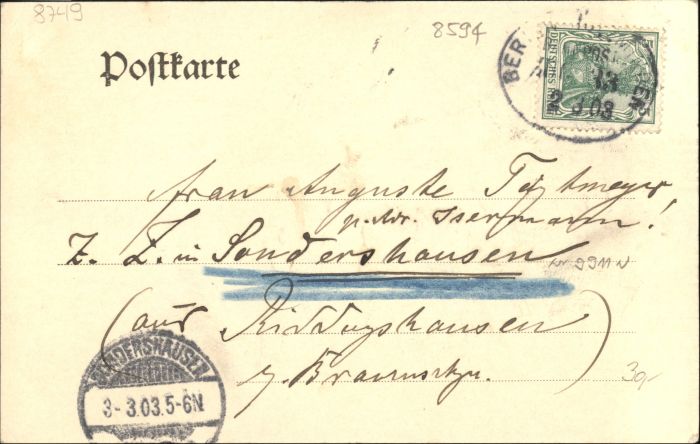 8749
8594
Postkarte
DEUTSCHES REICH
BER
2 3 03
Frau Auguste
p. Adr. Isermann!
z. Z. in Sondershausen
(aus Riddagshausen
b. Braunschw.
SONDERSHAUSEN
3-3.03.5-6N
30,-